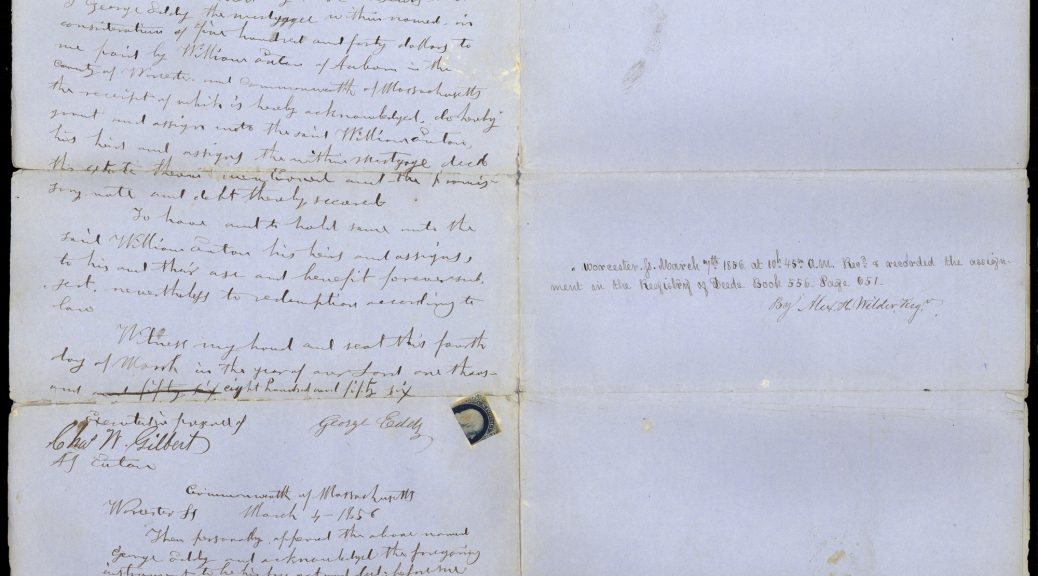 I George Eddy the mortgagee within named, in
consideration of five hundred and forty dollars to
me paid by William Eaton of Auburn in the
County of Worcester and Commonwealth of Massachusetts
the receipt of which is hereby acknowledged, do hereby
grant and assign unto the said William Eaton,
his heirs and assigns the within Mortgage deed
the estate therein mentioned and the promis-
sory note and debt thereby secured
To have and to hold same unto the
said William Eaton his heirs and assigns,
to his and their use and benefit forever sub-
ject, nevertheless to redemption according to
law
Witness my hand and seal this fourth
day of March in the year of our Lord one thous-
and and fifty six eight hundred and fifty six
Executed in presence of
George Eddy
Chas W. Gilbert
Eaton
Commonwealth of Massachusetts
Worcester Ss March 4 - 1856
Then personally appeared the above named
George Eddy and acknowledged the foregoing
instrument to be his free act and deed: before me
Worcester. Ss. March 7th 1856 at 10h 45m A.M. Recd & recorded the assign-
ment in the Registry of Deeds Book 556. Page 651.
By Alex. H. Wilder, Regr.